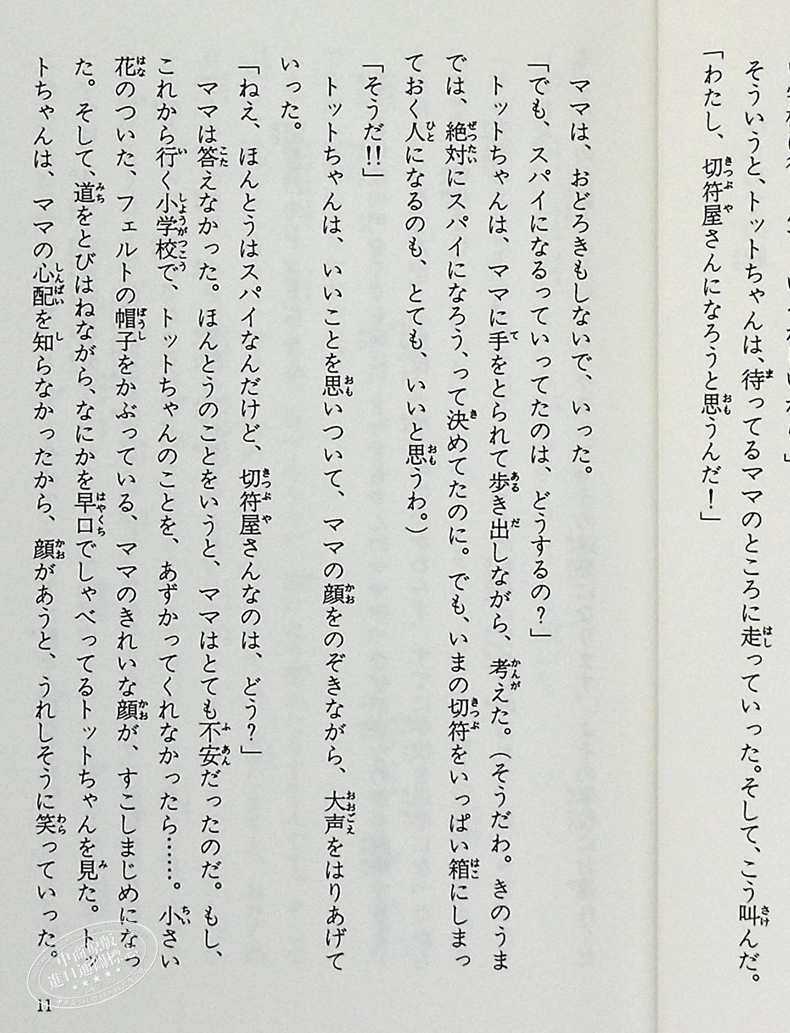 そういうと、トットちゃんは、待ってるママのところに走っていった。そして、こう叫んだ。
「わたし、切符屋さんになろうと思うんだ！」
ママは、おどろきもしないで、いった。
「でも、スパイになるっていってたのは、どうするの？」
トットちゃんは、ママに手をとられて歩き出しながら、考えた。（そうだわ。きのうま
では、絶対にスパイになろう、って決めてたのに。でも、いまの切符をいっぱい箱にしまっ
ておく人になるのも、とても、いいと思うわ。）
「そうだ!!」
トットちゃんは、いいことを思いついて、ママの顔をのぞきながら、大声をはりあげて
いった。
「ねえ、ほんとうはスパイなんだけど、切符屋さんなのは、どう？」
ママは答えなかった。ほんとうのことをいうと、ママはとても不安だったのだ。もし、
これから行く小学校で、トットちゃんのことを、あずかってくれなかったら……。小さい
花のついた、フェルトの帽子をかぶっている、ママのきれいな顔が、すこしまじめになっ
た。そして、道をとびはねながら、なにかを早口でしゃべってるトットちゃんを見た。トッ
トちゃんは、ママの心配を知らなかったから、顔があうと、うれしそうに笑っていった。
11
中商原版
進口通關標志